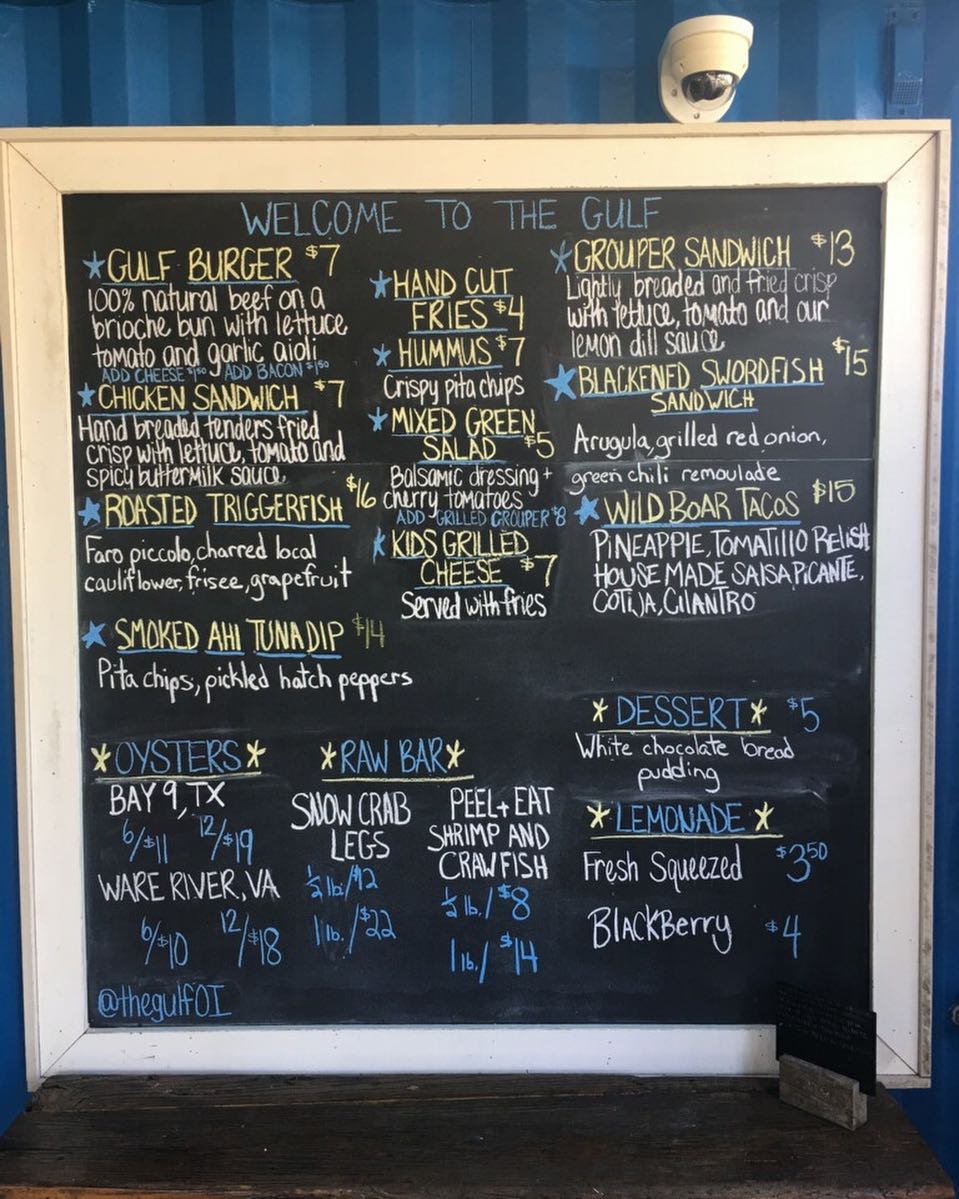 WELCOME TO THE GULF
GULF BURGER $7
100% natural beef on a
brioche bun with lettuce,
tomato and garlic aioli
ADD CHEESE $1.50 ADD BACON $1.50
CHICKEN SANDWICH $7
Hand breaded tenders fried
crisp with lettuce, tomato and
spicy buttermilk sauce
ROASTED TRIGGERFISH $16
Faro piccolo, charred local
cauliflower, frisee, grapefruit
SMOKED AHI TUNA DIP $14
Pita chips, pickled hatch peppers
HAND CUT
FRIES $4
HUMMUS $7
Crispy pita chips
MIXED GREEN
SALAD $5
Balsamic dressing +
cherry tomatoes
ADD GRILLED GROUPER $8
KIDS GRILLED
CHEESE $7
Served with fries
GROUPER SANDWICH $13
Lightly breaded and fried crisp
with lettuce, tomato and our
lemon dill sauce
BLACKENED SWORDFISH $15
SANDWICH
Arugula, grilled red onion,
green chili remoulade
WILD BOAR TACOS $15
PINEAPPLE, TOMATILLO RELISH
HOUSE MADE SALSA PICANTE,
COTIJA, CILANTRO
OYSTERS
BAY 9, TX
6/$11 12/$19
WARE RIVER, VA
6/$10 12/$18
RAW BAR
SNOW CRAB
LEGS
½ lb./$12
1 lb./$22
PEEL + EAT
SHRIMP AND
CRAWFISH
½ lb./$8
1 lb./$14
DESSERT $5
White chocolate bread
pudding
LEMONADE
Fresh Squeezed $3.50
BLACKBERRY $4
@thegulfOI